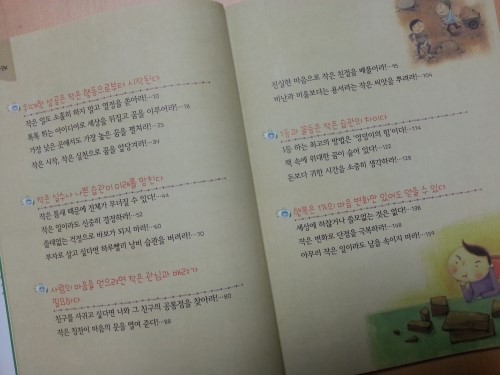 위대한 성공은 작은 행동으로부터 시작된다
작은 일도 소홀히 하지 말고 열정을 쏟아라!-10
톡톡 튀는 아이디어로 세상을 뒤집고 꿈을 이루어라!-16
가장 낮은 곳에서도 가장 높은 꿈을 펼쳐라!-25
작은 시작, 작은 실천으로 꿈을 앞당겨라!-34
작은 실수나 나쁜 습관이 미래를 망친다
작은 틈새 때문에 전체가 무너질 수 있다!-44
작은 일이라도 신중히 결정하라!-52
쓸데없는 걱정으로 바보가 되지 마라!-60
부자로 살고 싶다면 하루빨리 낭비 습관을 버려라!-70
사람의 마음을 얻으려면 작은 관심과 배려가
필요하다
친구를 사귀고 싶다면 너와 그 친구의 공통점을 찾아라!-80
작은 칭찬이 마음의 문을 열어 준다!-88
진실한 마음으로 작은 친절을 베풀어라!-95
비난과 미움보다는 용서라는 작은 씨앗을 뿌려라!-104
1등과 꼴등은 작은 습관의 차이다
1등 하는 최고의 방법은 '엉덩이의 힘'이다!-114
책 속에 위대한 꿈이 숨어 있다!-122
돈보다 귀한 시간을 소중히 생각하라!-128
행복은 1%의 마음 변화만 있어도 얻을 수 있다
세상에 하찮거나 쓸모없는 것은 없다!-138
작은 변화로 단점을 극복하라!-148
아무리 작은 일이라도 남을 속이지 마라!-159